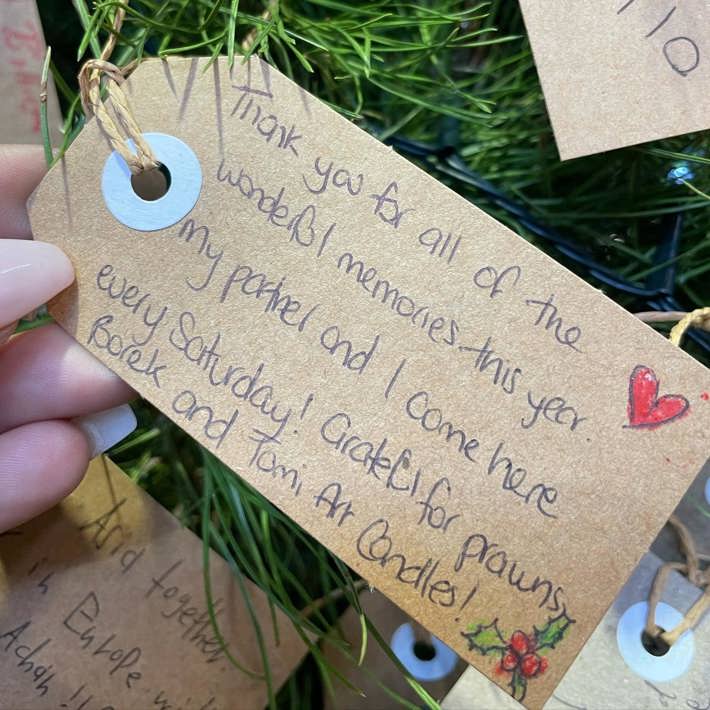 Thank you for all of the
wonderful memories this year.
my partner and I come here
every Saturday! Grateful for prawns,
Borek and Tomi Art Candles!
110
And together
in Europe
Achah!